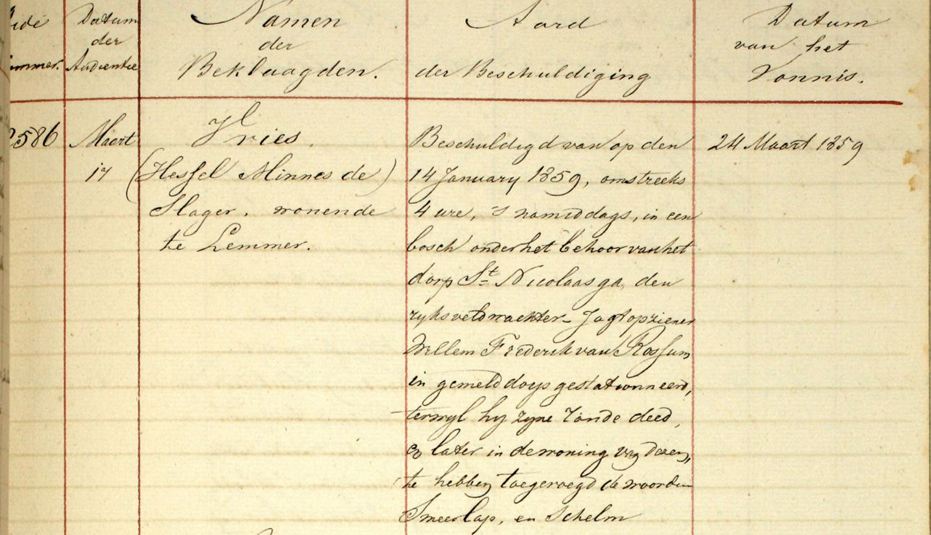 Datum
der
Audientie
Namen
der
Beklaagden.
Aard
der Beschuldiging
Datum
van het
Vonnis.
2586
Maart
17
Vries.
(Hessel Minnes de)
Slager, wonende
te Lemmer.
Beschuldigd van op den
14 January 1859, omstreeks
4 ure, 's namiddags, in een
bosch onder het behoor van het
dorp St Nicolaasga, den
ryksveldwachter-Jagtopziener
Willem Frederik van Rossum
in gemeld dorp gestationneerd,
terwyl hy zyne ronde deed,
en later in de woning van dezen,
te hebben toegevoegd de woorden
Smeerlap, en Schelm
24 Maart 1859